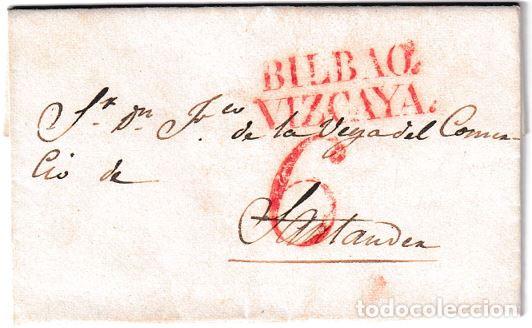 BILBAO.
VIZCAYA.
Sr. Dn. Fco. de la Vega del Comer-
cio de
6
Santander
todocoleccion